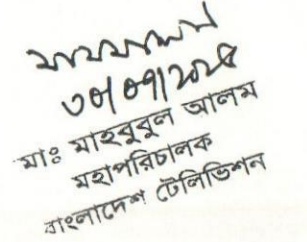 ৩০/০৭/২০২৫
মাঃ মাহবুবুল আলম
মহাপরিচালক
বাংলাদেশ টেলিভিশন